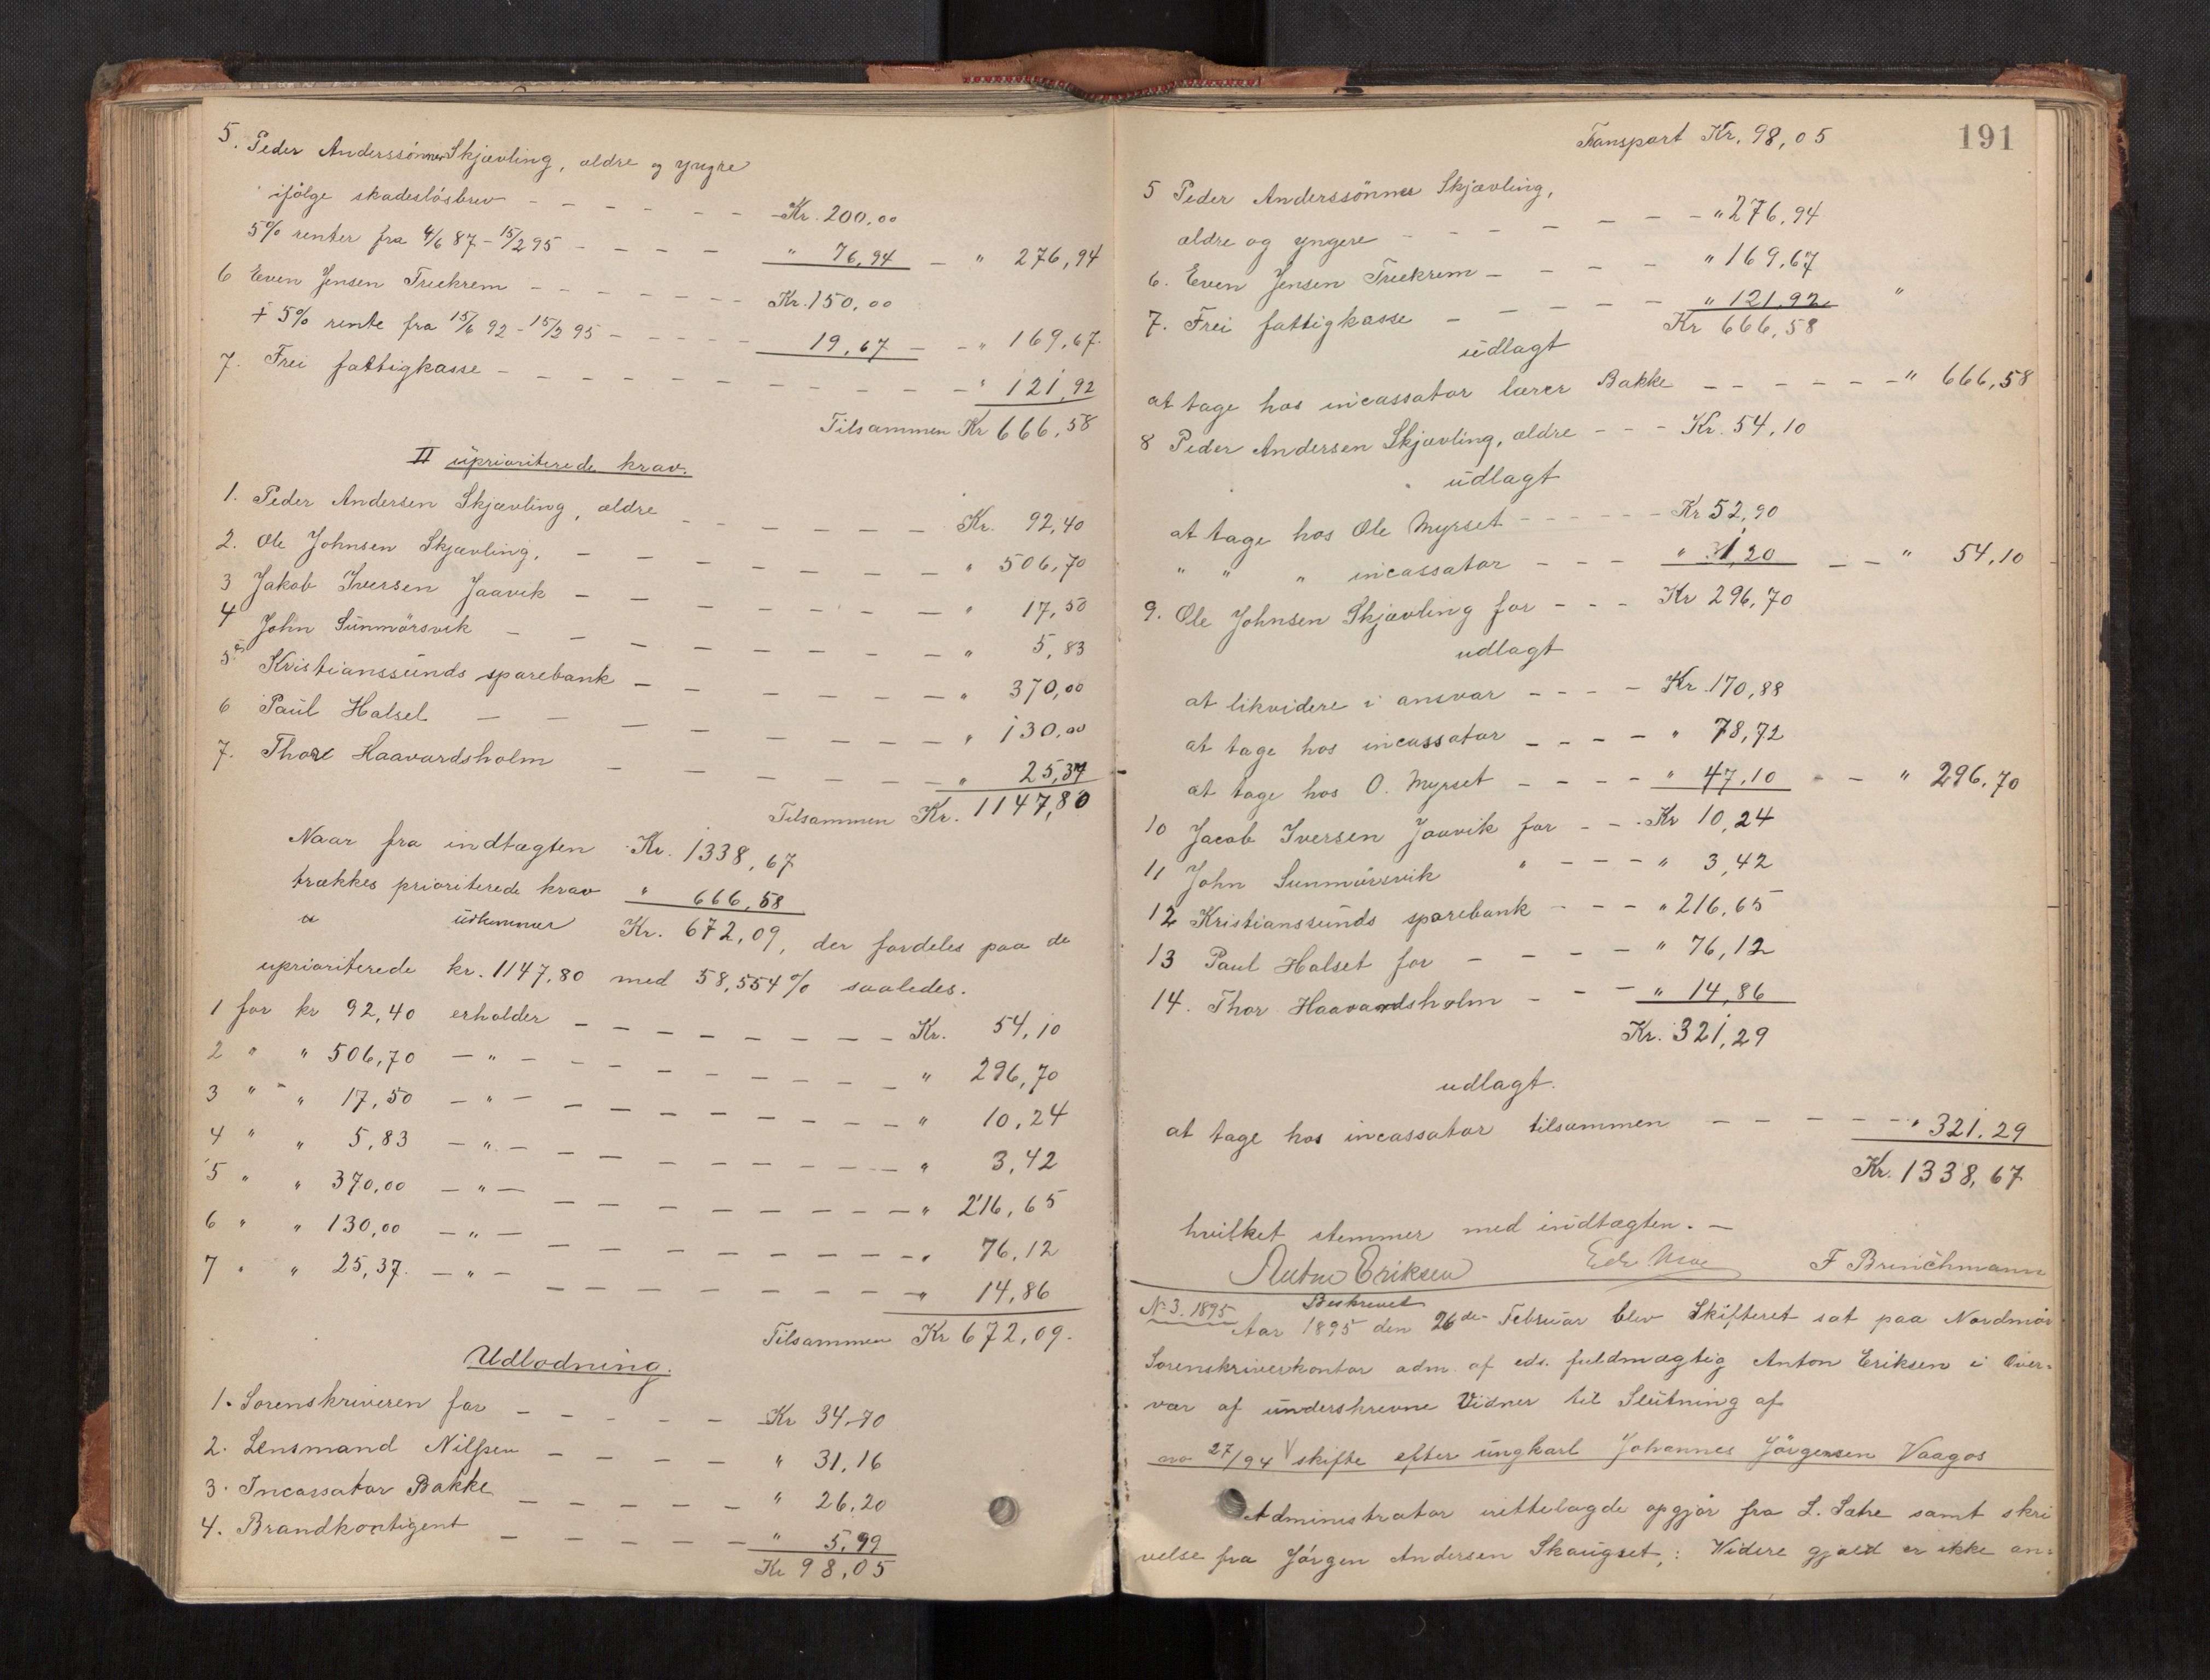 5. Peder Anderssönner Skjævling, ældre og yngre
ifölge skadeslösbrev - - - - - - Kr. 200,00
5% renter fra 4/6 87 - 15/2 95 - - - - " 76,94 - " 276,94
6 Even Jensen Treekrem - - - - - - - Kr. 150,00
+ 5% rente fra 15/6 92 - 15/2 95 - - - - - 19,67 - - " 169,67.
7. Frei fattigkasse - - - - - - - - - - - - " 121,92
Tilsammen Kr 666,58
II uprioriterede krav.
1. Peder Andersen Skjævling, ældre - - - - - - Kr. 92,40
2. Ole Johnsen Skjævling, - - - - - - - " 506,70
3 Jakob Iversen Jaavik - - - - - - - " 17,50
4 John Sunmörsvik - - - - - - - - " 5,83
5. Kristianssunds sparebank - - - - - - " 370,00
6 Paul Halset - - - - - - - - " 130,00
7. Thore Haavardsholm - - - - - - " 25,37
Tilsammen Kr. 1147,80
Naar fra indtægten Kr. 1338,67
trækkes prioriterede krav " 666,58
udkommer Kr. 672,09, der fordeles paa de
uprioriterede kr. 1147,80 med 58,554% saaledes.
1 for kr 92,40 erholder - - - - - - - - Kr. 54,10
2 " " 506,70 - " - - - - - - - - - " 296,70
3 " " 17,50 - " - - - - - - - - - " 10,24
4 " " 5,83 - " - - - - - - - - - " 3,42
5 " " 370,00 - " - - - - - - - - - " 216,65
6 " " 130,00 - " - - - - - - - - - " 76,12
7 " " 25,37. - " - - - - - - - - - " 14,86
Tilsammen Kr 672,09.
Udlodning.
1. Sorenskriveren for - - - - - Kr 34,70
2. Lensmand Nilssen - - - - - " 31,16
3. Incassator Bakke - - - - - " 26,20
4. Brandkontigent - - - - - " 5,99
Kr 98,05
191
Transport Kr. 98,05
5 Peder Anderssönner Skjævling,
ældre og yngere - - - - - - - " 276,94
6. Even Jensen Treekrem - - - - " 169,67
7. Frei fattigkasse - - - - - " 121,92 "
Kr 666,58
udlagt
at tage hos incassator lærer Bakke - - - - - - " 666,58
8 Peder Andersen Skjævling, ældre - - - Kr. 54,10
udlagt
at tage hos Ole Myrset - - - - - Kr 52,90
" " " incassator - - - " 1,20 - - " 54,10
9. Ole Johnsen Skjævling for - - - Kr 296,70
udlagt
at likvidere i ansvar - - - - Kr. 170,88
at tage hos incassator - - - - " 78,72
at tage hos O. Myrset - - - - " 47,10 - - " 296,70
10 Jacob Iversen Jaavik for - - Kr 10,24
11 John Sunmörsvik " - - - " 3,42
12 Kristianssunds sparebank - - - " 216,65
13 Paul Halset for - - - - " 76,12
14. Thor Haavardsholm - - - " 14,86
Kr. 321,29
udlagt.
at tage hos incassator tilsammen - - - - - " 321,29
Kr. 1338,67
hvilket stemmer med indtægten. -
Anton Eriksen Edv Moe F Brinchmann
No 3. 1895 Beskrevet
Aar 1895 den 26de Februar blev Skifteret sat paa Nordmör
Sorenskriverkontor adm. af eds. fuldmægtig Anton Eriksen i Over-
vær af underskrevne Vidner til Slutning af
no 27/94 skifte efter ungkarl Johannes Jörgensen Vaagos
Administrator rettelagde opgjör fra L. Sæhre samt skri
velse fra Jörgen Andersen Skaugset,: Videre gjæld er ikke an-